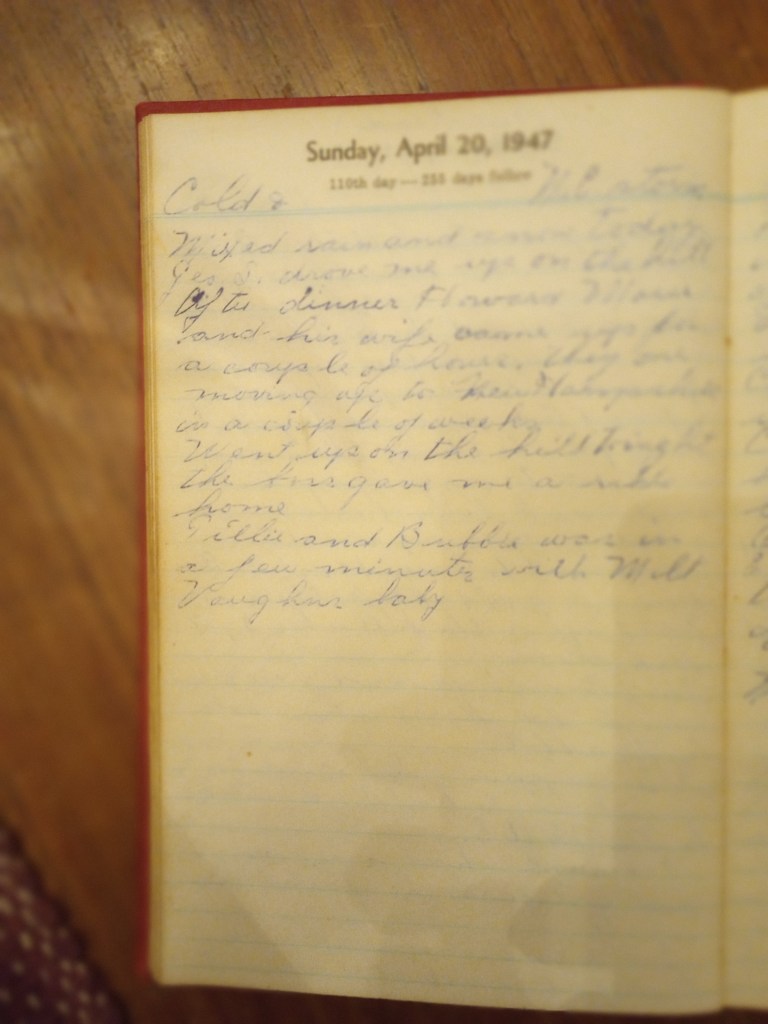 Sunday, April 20, 1947
110th day — 255 days follow
Cold & N.E. storm
Mixed rain and snow today
drove me up on the hill
After dinner Howard
and his wife came up for
a couple of hours, they are
moving up to New Hampshire
in a couple of weeks
Went up on the hill tonight
the bus gave me a ride
home
Tillie and Bubbie was in
a few minutes with Milt
Vaughns baby